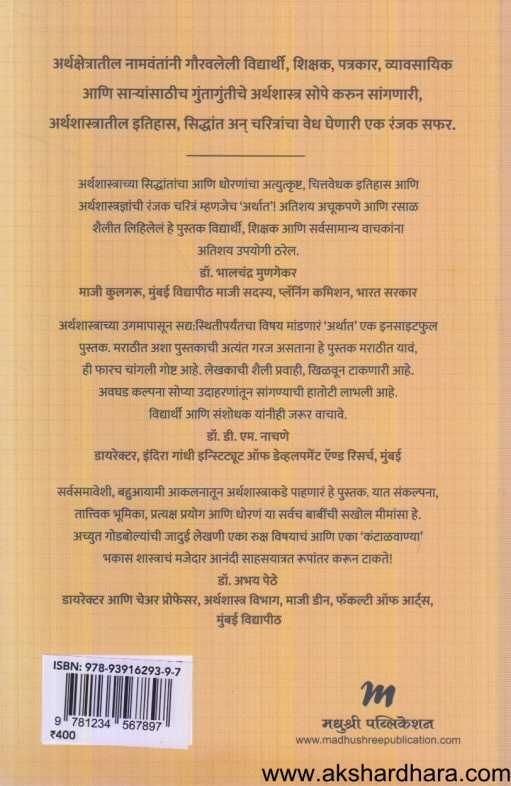 अर्थक्षेत्रातील नामवंतांनी गौरवलेली विद्यार्थी, शिक्षक, पत्रकार, व्यावसायिक
आणि साऱ्यांसाठीच गुंतागुंतीचे अर्थशास्त्र सोपे करुन सांगणारी,
अर्थशास्त्रातील इतिहास, सिद्धांत अन् चरित्रांचा वेध घेणारी एक रंजक सफर.
अर्थशास्त्राच्या सिद्धांतांचा आणि धोरणांचा अत्युत्कृष्ट, चित्तवेधक इतिहास आणि
अर्थशास्त्रज्ञांची रंजक चरित्रं म्हणजेच 'अर्थात'! अतिशय अचूकपणे आणि रसाळ
शैलीत लिहिलेलं हे पुस्तक विद्यार्थी, शिक्षक आणि सर्वसामान्य वाचकांना
अतिशय उपयोगी ठरेल.
डॉ. भालचंद्र मुणगेकर
माजी कुलगरू, मुंबई विद्यापीठ माजी सदस्य, प्लॅनिंग कमिशन, भारत सरकार
अर्थशास्त्राच्या उगमापासून सद्य:स्थितीपर्यंतचा विषय मांडणारं 'अर्थात' एक इनसाइटफुल
पुस्तक. मराठीत अशा पुस्तकाची अत्यंत गरज असताना हे पुस्तक मराठीत यावं,
ही फारच चांगली गोष्ट आहे. लेखकाची शैली प्रवाही, खिळवून टाकणारी आहे.
अवघड कल्पना सोप्या उदाहरणांतून सांगण्याची हातोटी लाभली आहे.
विद्यार्थी आणि संशोधक यांनीही जरूर वाचावे.
डॉ. डी. एम. नाचणे
डायरेक्टर, इंदिरा गांधी इन्स्टिट्यूट ऑफ डेव्हलपमेंट ऍण्ड रिसर्च, मुंबई
सर्वसमावेशी, बहुआयामी आकलनातून अर्थशास्त्राकडे पाहणारं हे पुस्तक. यात संकल्पना,
तात्त्विक भूमिका, प्रत्यक्ष प्रयोग आणि धोरणं या सर्वच बाबींची सखोल मीमांसा हे.
अच्युत गोडबोल्यांची जादुई लेखणी एका रुक्ष विषयाचं आणि एका 'कंटाळवाण्या'
भकास शास्त्राचं मजेदार आनंदी साहसयात्रत रूपांतर करून टाकते!
डॉ. अभय पेठे
डायरेक्टर आणि चेअर प्रोफेसर, अर्थशास्त्र विभाग, माजी डीन, फॅकल्टी ऑफ आर्ट्स,
मुंबई विद्यापीठ
ISBN: 978-93916293-9-7
9 781234 567897
₹400
मधुश्री पब्लिकेशन
www.madhushreepublication.com
www.akshardhara.com